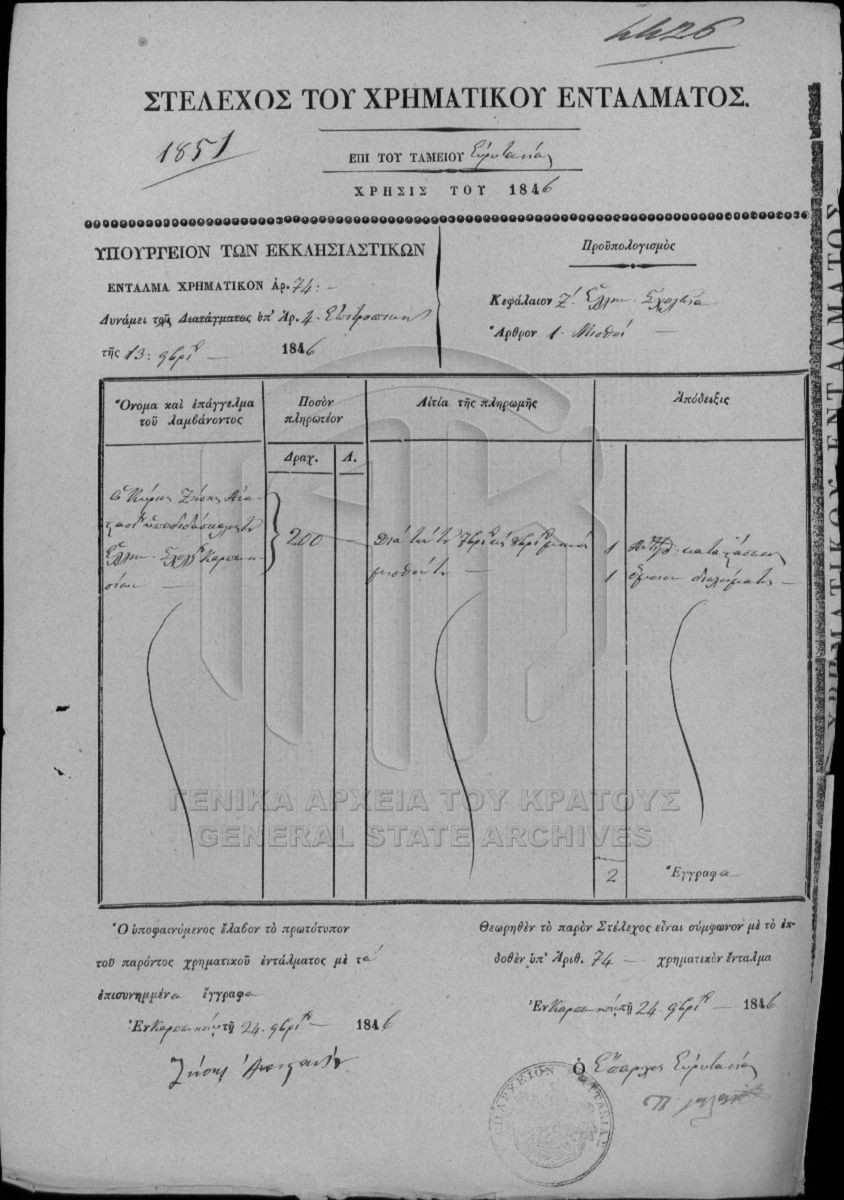 4426
ΣΤΕΛΕΧΟΣ ΤΟΥ ΧΡΗΜΑΤΙΚΟΥ ΕΝΤΑΛΜΑΤΟΣ.
1851
ΕΠΙ ΤΟΥ ΤΑΜΕΙΟΥ Εὐρυτανίας
ΧΡΗΣΙΣ ΤΟΥ 1846
ΥΠΟΥΡΓΕΙΟΝ ΤΩΝ ΕΚΚΛΗΣΙΑΣΤΙΚΩΝ
ΕΝΤΑΛΜΑ ΧΡΗΜΑΤΙΚΟΝ Ἀρ. 74
Δυνάμει τοῦ Διατάγματος ὑπ' Ἀρ. 4
τῆς 13 9βρίου 1846
Προϋπολογισμὸς
Κεφάλαιον Ζ. Ἑλλην. Σχολεῖα
Ἄρθρον 1. Μισθοί
Ὄνομα καὶ ἐπάγγελμα
τοῦ λαμβάνοντος
Ποσὸν
πληρωτέον
Δραχ. Λ.
Αἰτία τῆς πληρωμῆς
Ἀπόδειξις
Ὁ Κύριος Ζήσης
ὑποδιδάσκαλος τοῦ
Ἑλλην. Σχολ. Καρπενη-
σίου
200
διὰ τὸν τῶν 7βρίου καὶ 8βρίου
μισθόν του
1
1 ὅμοιον
2 Ἔγγραφα
ΓΕΝΙΚΑ ΑΡΧΕΙΑ ΤΟΥ ΚΡΑΤΟΥΣ
GENERAL STATE ARCHIVES
Ὁ ὑποφαινόμενος ἔλαβον τὸ πρωτότυπον
τοῦ παρόντος χρηματικοῦ ἐντάλματος μὲ τὰ
ἐπισυνημμένα ἔγγραφα
Ἐν Καρπενησίῳ τῇ 24 9βρίου 1846
Ζήσης
Θεωρηθὲν τὸ παρὸν Στέλεχος εἶναι σύμφωνον μὲ τὸ ἐκ-
δοθὲν ὑπ' Ἀριθ. 74 χρηματικὸν ἔνταλμα
Ἐν Καρπενησίῳ τῇ 24 9βρίου 1846
Ὁ Ἔπαρχος Εὐρυτανίας
ΕΠΑΡΧΕΙΟΝ ΕΥΡΥΤΑΝΙΑΣ
ΧΡΗΜΑΤΙΚΟΥ ΕΝΤΑΛΜΑΤΟΣ